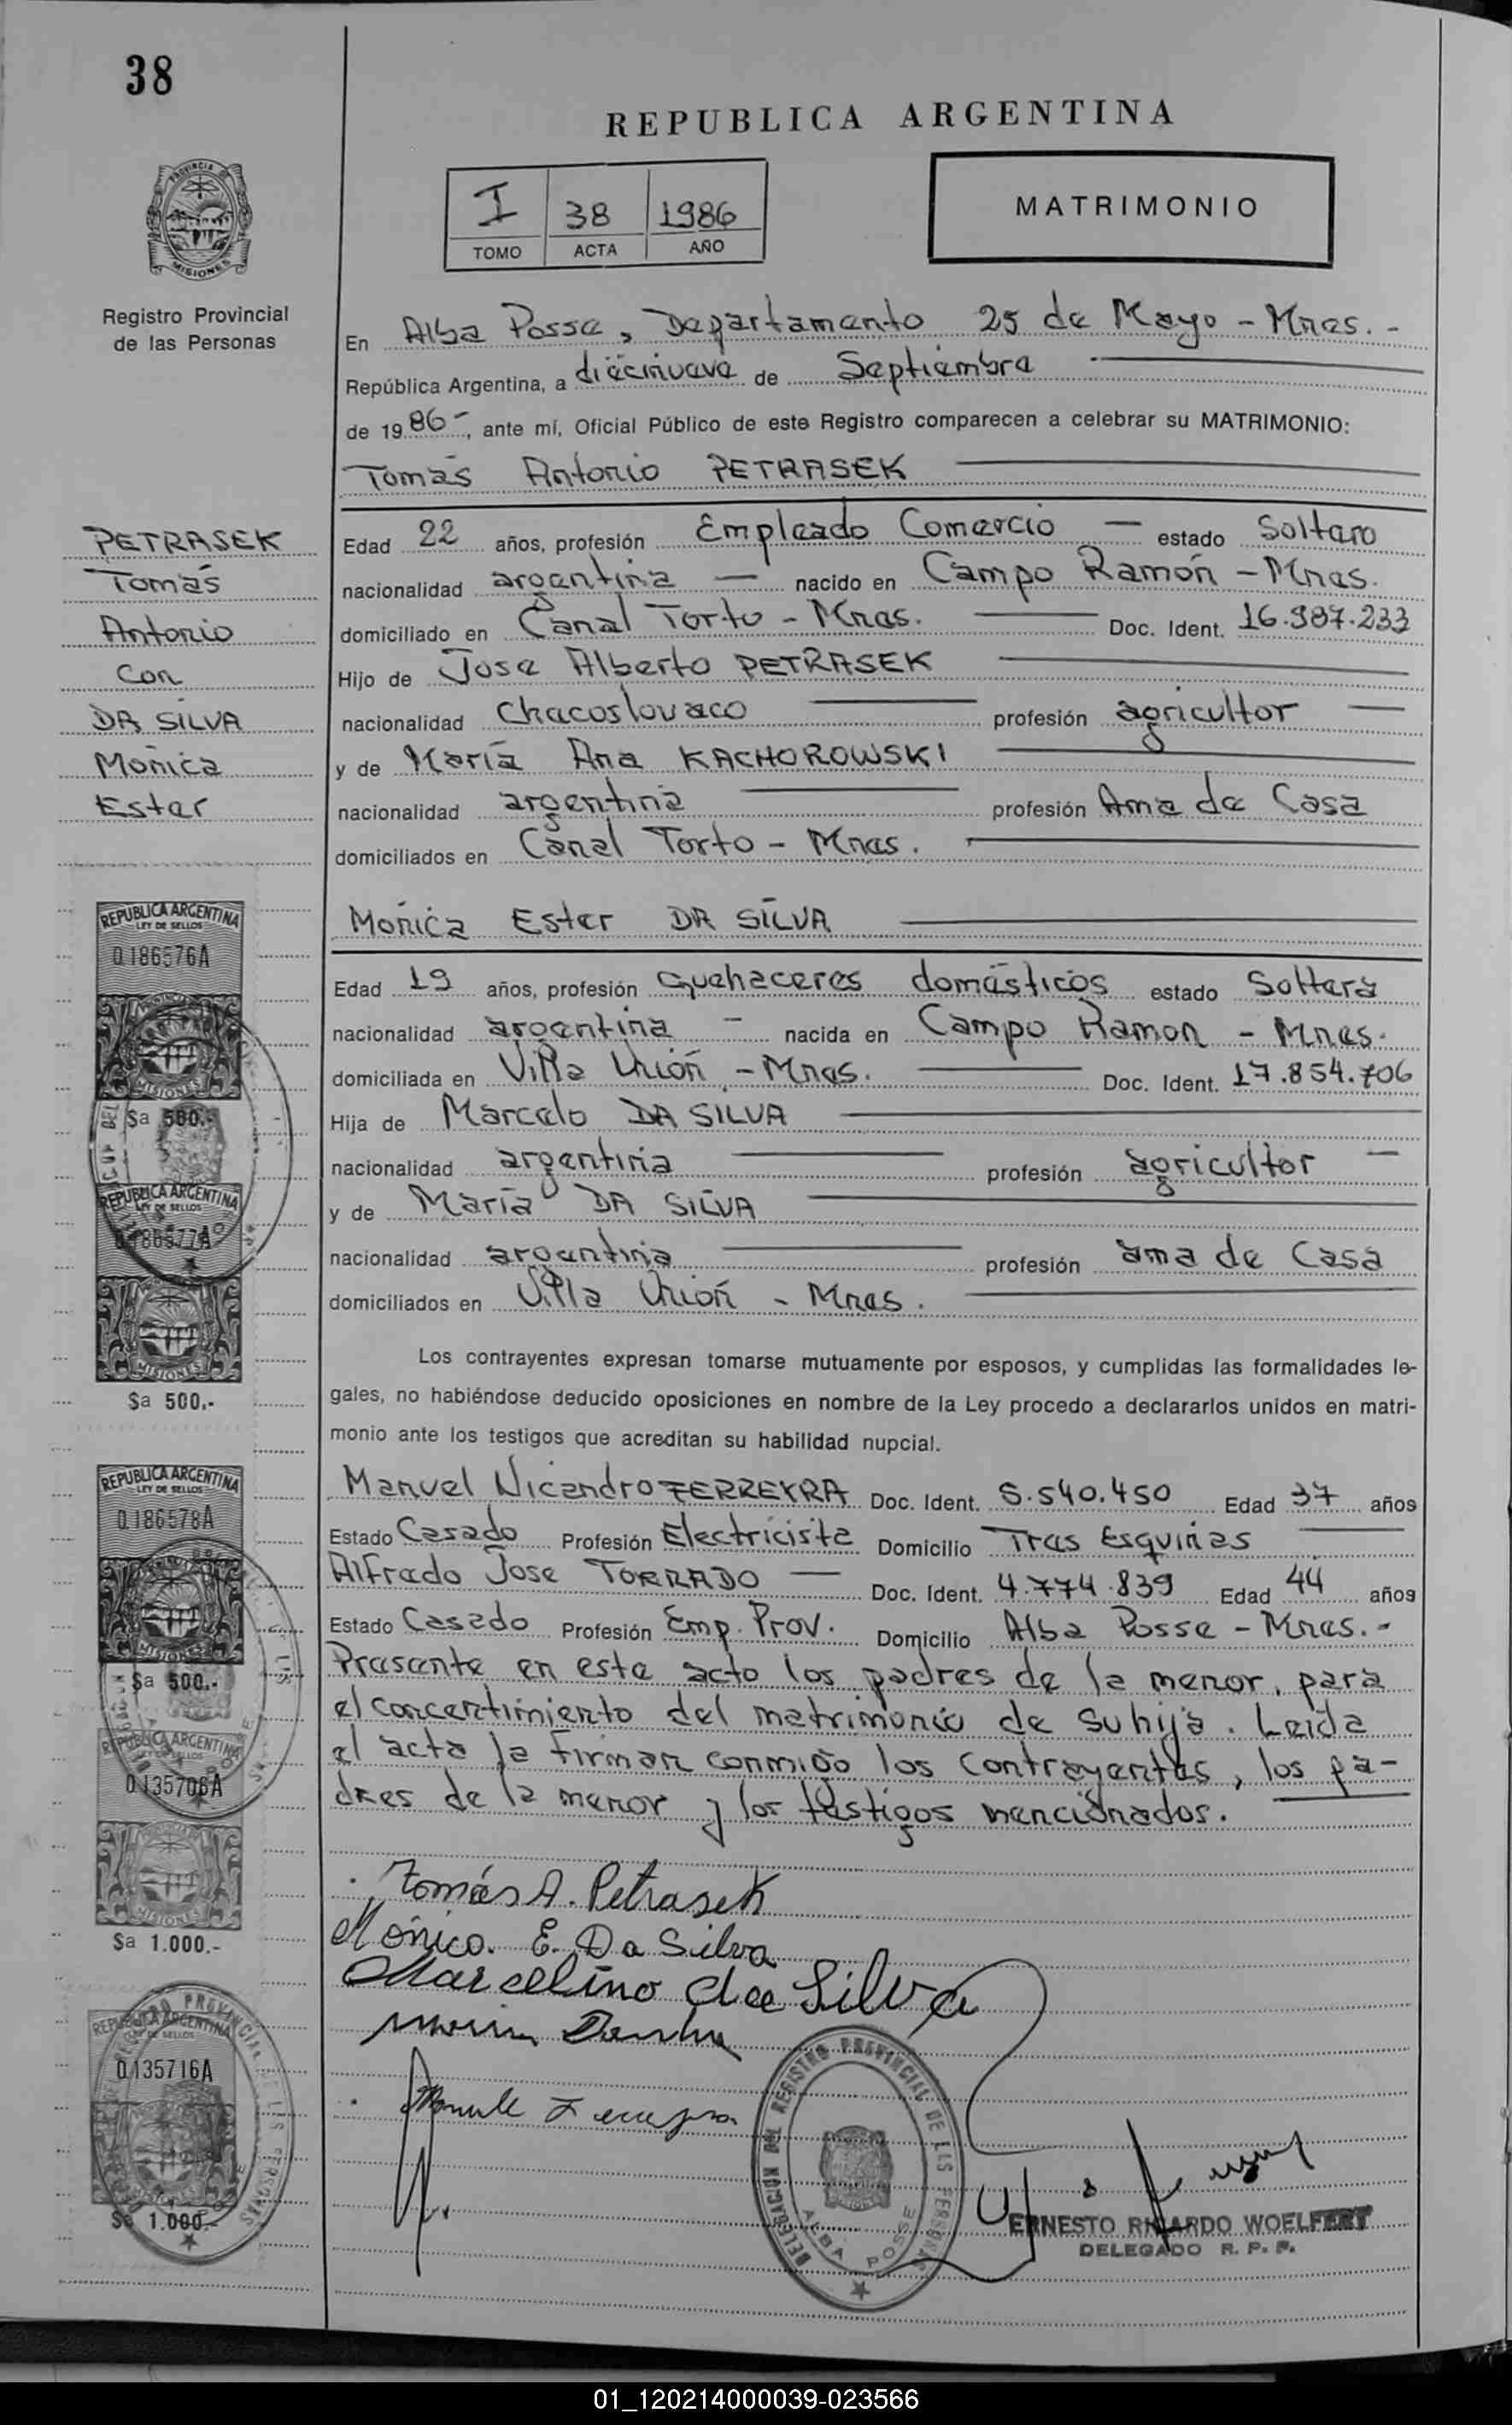 38
REPUBLICA ARGENTINA
I 38 1986
TOMO ACTA AÑO
MATRIMONIO
PROVINCIA DE
MISIONES
Registro Provincial
de las Personas
En Alba Posse, Departamento 25 de Mayo - Mnes. -
República Argentina, a diecinueve de Septiembre
de 1986-, ante mí, Oficial Público de este Registro comparecen a celebrar su MATRIMONIO:
Tomás Antonio PETRASEK
PETRASEK
Tomás
Antonio
Con
DA SILVA
Mónica
Ester
Edad 22 años, profesión Empleado Comercio — estado Soltero
nacionalidad argentina — nacido en Campo Ramón - Mnes.
domiciliado en Canal Torto - Mnes. Doc. Ident. 16.987.233
Hijo de Jose Alberto PETRASEK
nacionalidad Checoslovaco profesión agricultor —
y de María Ana KACHOROWSKI
nacionalidad argentina profesión Ama de Casa
domiciliados en Canal Torto - Mnes.
Mónica Ester DA SILVA
Edad 19 años, profesión Quehaceres domésticos estado Soltera
nacionalidad argentina - nacida en Campo Ramon - Mnes.
domiciliada en Villa Unión - Mnes. Doc. Ident. 17.854.706
Hija de Marcelo DA SILVA
nacionalidad argentina profesión agricultor —
y de María DA SILVA
nacionalidad argentina profesión ama de Casa
domiciliados en Villa Unión - Mnes.
Los contrayentes expresan tomarse mutuamente por esposos, y cumplidas las formalidades le-
gales, no habiéndose deducido oposiciones en nombre de la Ley procedo a declararlos unidos en matri-
monio ante los testigos que acreditan su habilidad nupcial.
Manuel Nicandro FERREYRA Doc. Ident. 5.540.450 Edad 37 años
Estado Casado Profesión Electricista Domicilio Tres Esquinas
Alfredo Jose TORRADO — Doc. Ident. 4.774.839 Edad 44 años
Estado Casado Profesión Emp. Prov. Domicilio Alba Posse - Mnes. -
Presente en este acto los padres de la menor, para
el concertimiento del matrimonio de su hija. Leida
el acta la firman conmigo los contrayentes, los pa-
dres de la menor y los testigos mencionados.
Tomás A. Petrasek
Mónica. E. Da Silva
Marcelino da Silva
ERNESTO RICARDO WOELFERT
DELEGADO R. P. P.
DELEGACION DEL REGISTRO PROVINCIAL DE LAS PERSONAS
ALBA POSSE
REPUBLICA ARGENTINA
LEY DE SELLOS
0.186576A
MISIONES
$a 500.-
REPUBLICA ARGENTINA
LEY DE SELLOS
0.186577A
MISIONES
$a 500.-
REPUBLICA ARGENTINA
LEY DE SELLOS
0.186578A
MISIONES
$a 500.-
REPUBLICA ARGENTINA
LEY DE SELLOS
0.135706A
MISIONES
$a 1.000.-
REPUBLICA ARGENTINA
LEY DE SELLOS
0.135716A
$a 1.000.-
01_120214000039-023566